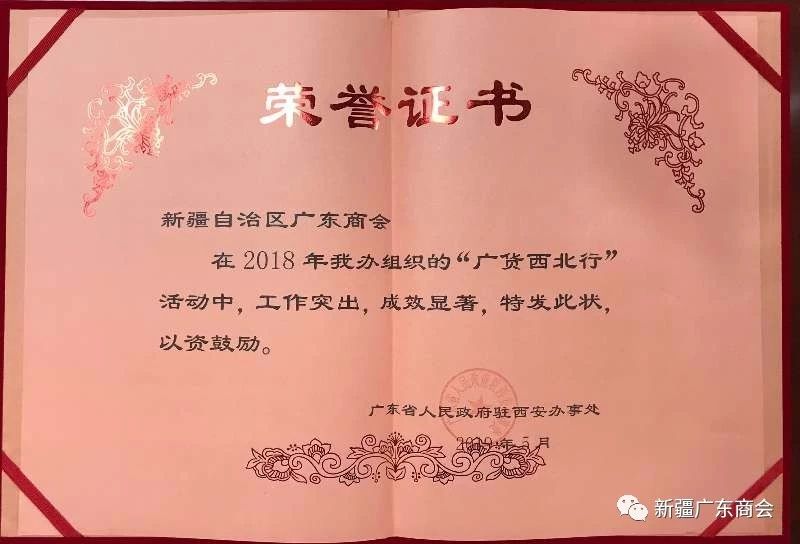 荣誉证书
新疆自治区广东商会
在2018年我办组织的“广货西北行”
活动中，工作突出，成效显著，特发此状，
以资鼓励。
广东省人民政府驻西安办事处
2019年5月
新疆广东商会